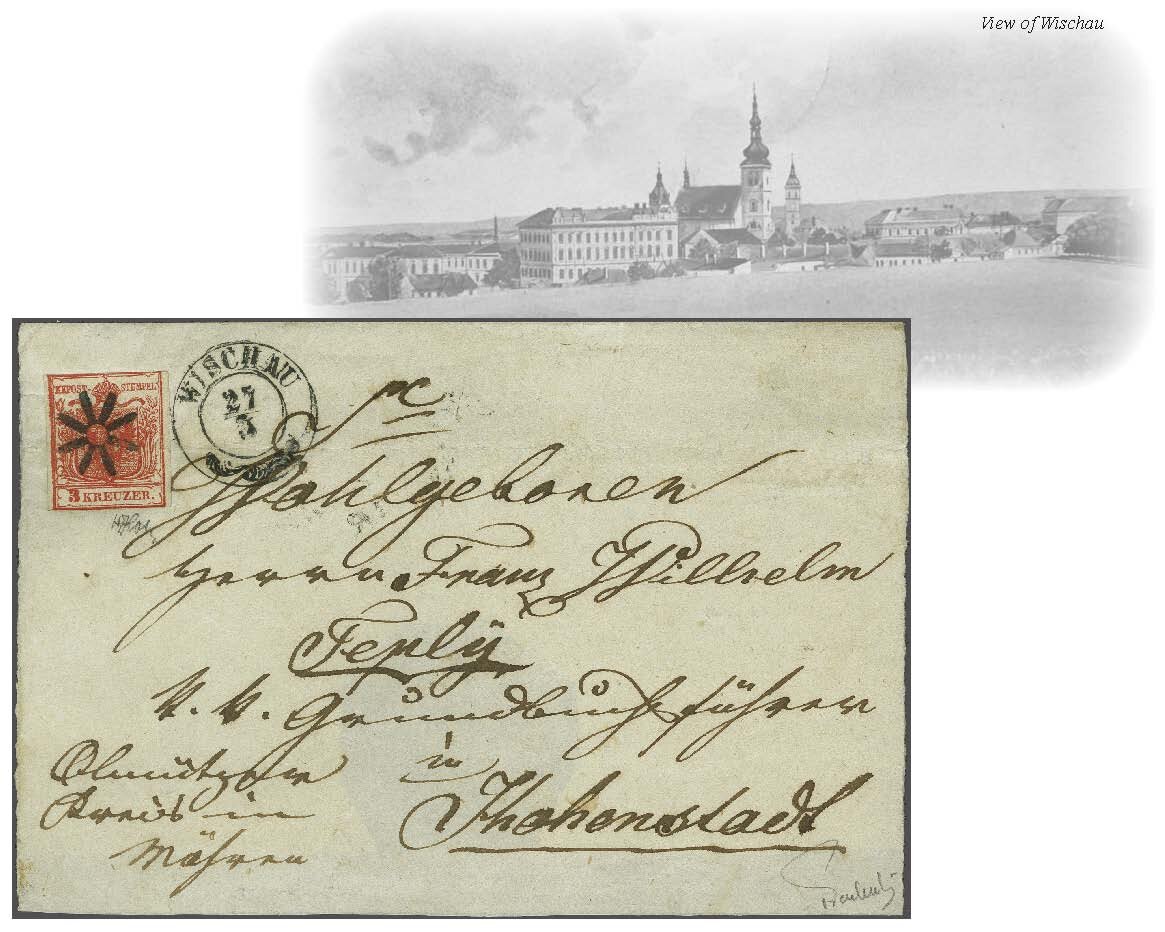 View of Wischau
KKPOST-STEMPEL
3 KREUZER.
WISCHAU
27
3
Wohlgeboren
Herrn Franz Wilhelm
Teplÿ
k. k. Grundbuchsführer
in
Hohenstadt
Olmützer
Kreis in
Mähren